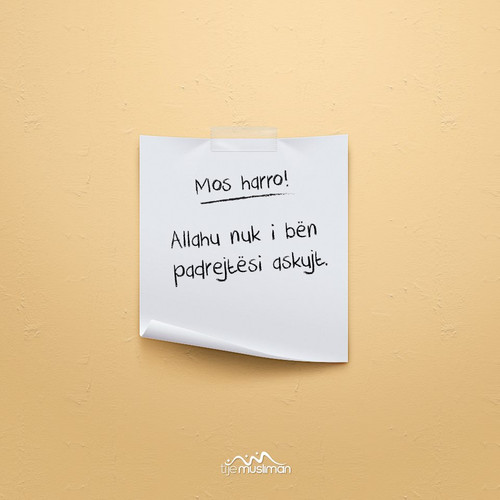 Mos harro!
Allahu nuk i bën
padrejtësi askujt.
tijemusliman